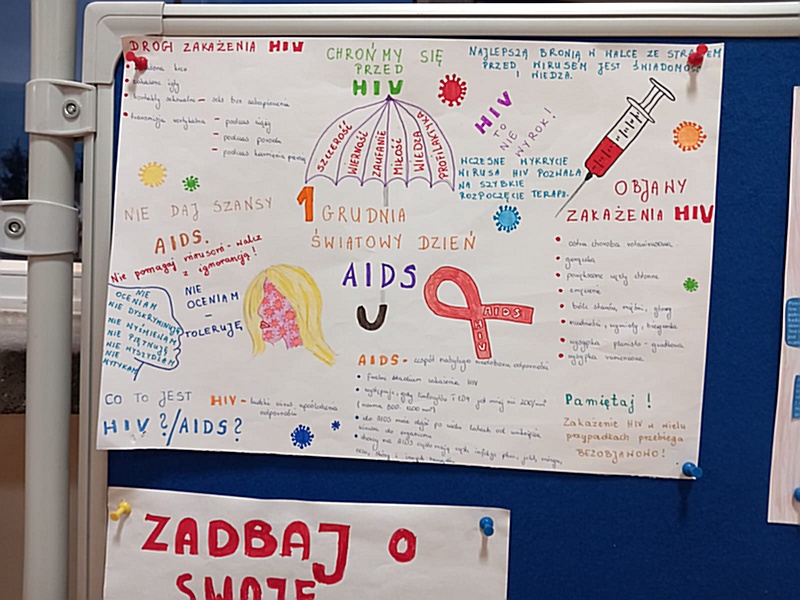 DROGI ZAKAŻENIA HIV
kontakty seksualne - seks bez zabezpieczenia
transmisja wertykalna - podczas ciąży
- podczas porodu
- podczas karmienia piersią
CHROŃMY SIĘ
PRZED
HIV
SZCZEROŚĆ
WIERNOŚĆ
ZAUFANIE
MIŁOŚĆ
WIEDZA
PROFILAKTYKA
NAJLEPSZĄ BRONIĄ W WALCE ZE
PRZED WIRUSEM JEST
I WIEDZA.
HIV
TO
NIE
WYROK!
WCZESNE WYKRYCIE
WIRUSA HIV POZWALA
NA SZYBKIE
ROZPOCZĘCIE
NIE DAJ SZANSY
AIDS.
Nie pomagaj wirusowi - walcz
z ignorancją!
1 GRUDNIA
ŚWIATOWY DZIEŃ
AIDS
OBJAWY
ZAKAŻENIA HIV
ostra choroba retrowirusowa
gorączka
powiększone węzły chłonne
zmęczenie
bóle stawów, mięśni, głowy
nudności, wymioty, biegunka
wysypka plamisto - grudkowa
wysypka
NIE
OCENIAM
NIE DYSKRYMINUJĘ
NIE WYŚMIEWAM
NIE PIĘTNUJĘ
NIE WYSZYDZAM
NIE
WYTYKAM
NIE
OCENIAM
-
TOLERUJĘ
AIDS
HIV
CO TO JEST
HIV?/AIDS?
HIV - ludzki wirus upośledzenia
odporności
AIDS - zespół nabytego niedoboru odporności
Pamiętaj!
Zakażenie HIV w wielu
przypadkach przebiega
BEZOBJAWOWO!
ZADBAJ O
SWOJE